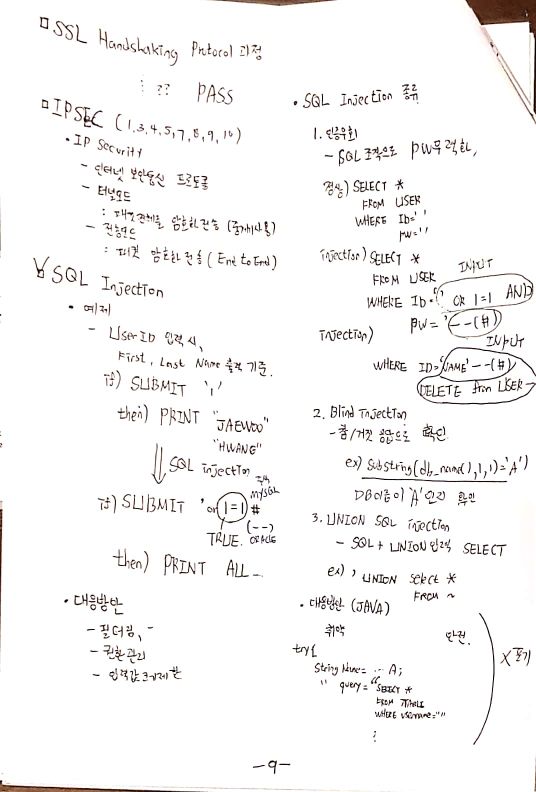 □ SSL Handshaking Protocol 과정
: ?? PASS
□ IPSEC (1,3,4,5,7,8,9,10)
• IP Security
- 인터넷 보안통신 프로토콜
- 터널모드
: 패킷전체를 암호화 전송 (중계사용)
- 전송모드
: 패킷 암호화 전송 (End to End)
SQL Injection
• 예제
- User ID 입력시,
First, Last Name 출력 기준.
if) SUBMIT '1'
then) PRINT "JAEWOO"
"HWANG"
⇓ SQL injection
if) SUBMIT 'or 1=1 #
MySQL
TRUE. (--) ORACLE
then) PRINT ALL
• 대응방안
- 필터링,
- 권한관리
- 입력값 크기제한
• SQL Injection 종류
1. 인증우회
- SQL 조작으로 PW무력화,
정상) SELECT *
FROM USER
WHERE Id=' '
PW=' '
injection) SELECT *
INPUT
FROM USER
WHERE ID=' ' OR 1=1 AND
PW = '--(#)
injection)
INPUT
WHERE ID='NAME'--(#)
DELETE from USER
2. Blind Injection
- 참/거짓 응답으로 확인
ex) Substring(db_name(),1,1)='A')
DB이름이 'A'인지 확인
3. UNION SQL injection
- SQL + UNION 입력 SELECT
ex) ' UNION Select *
FROM ~
• 대응방안 (JAVA)
취약 안전.
try{
String Name= ... A;
" query = "SELECT *
FROM
WHERE username=""
:
X 포기
-9-